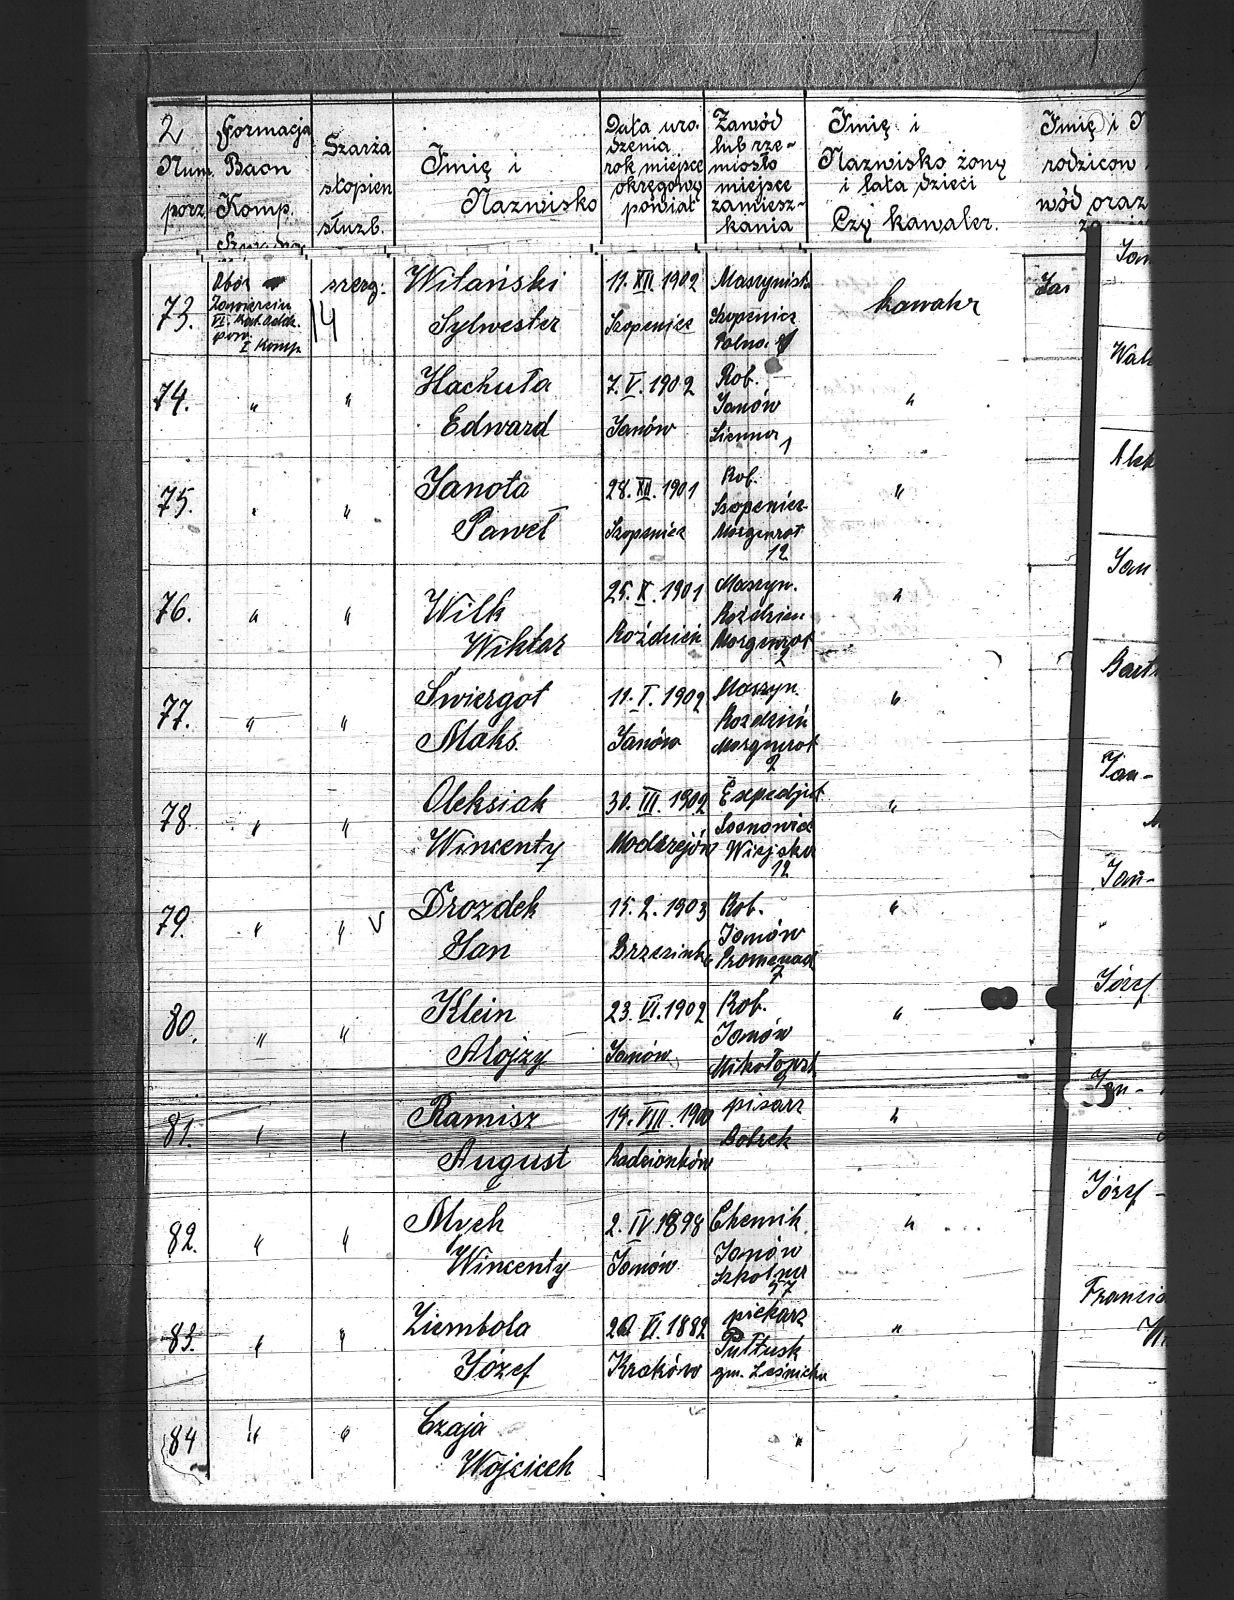 2
Num.
porz.
Formacja
Baon
Komp.
Szarża
stopień
służb.
Imię i
Nazwisko
Data uro-
dzenia
rok miejsce
okręgowy
powiat
Zawód
lub rze-
miosło
miejsce
zamiesz-
kania
Imię i
Nazwisko żony
i lata dzieci
Czy kawaler.
Imię i N
rodziców
wód oraz
73.
Obóz
Zawiercin
I Komp.
szereg.
14
Witański
Sylwester
11. XII. 1902
Szopenice
Maszynista
Szopenice
Polna.
kawaler
Jan
74.
"
"
Hachuła
Edward
7. V. 1902
Janów
Rob.
Janów
1
"
Wal
75.
"
"
Janota
Paweł
28. XII. 1901
Szopenice
Rob.
Szopenice
Morgenrot
12
"
76.
"
"
Wilk
Wiktor
25. X. 1901
Roździeń
Maszyn.
Roździeń
Morgenrot
2
"
Jan
77.
"
"
Swiergot
Maks.
11. I. 1902
Janów
Maszyn.
Rozdzień
Morgenrot
2
"
78
"
"
Oleksiak
Wincenty
30. III. 1902
Modrzejów
Expedjent
Sosnowiec
Wiejska
12
"
Jan-
79.
"
"
V
Drozdek
Jan
15. 2. 1903
Brzezinka
Rob.
Janów
Promenad
7
"
Jan-
"
80.
"
"
Klein
Alojzy
23. VI. 1902
Janów
Rob.
Janów
"
Józef
81.
"
"
Ramisz
August
Radzionków
pisarz
Bobrek
"
Jan-
82.
"
"
Mych
Wincenty
2. IV 1898
Janów
Chemik
Janów
Szkolna
57
"
Józef-
83.
"
"
Ziembola
Józef
VI. 1882
Kraków
piekarz
Pułtusk
"
84
"
"
Czaja
Wojciech
"